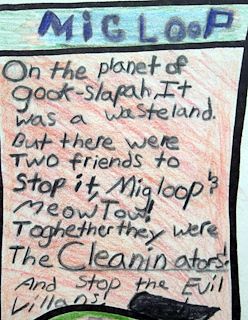 MIGLOOP
On the planet of
gook-slapah, It
was a wasteland.
But there were
TWO friends to
Stop it, Migloop's
MeowTow!
Toghether they were
The Cleaninators!
And Stop the Evil
Villans!